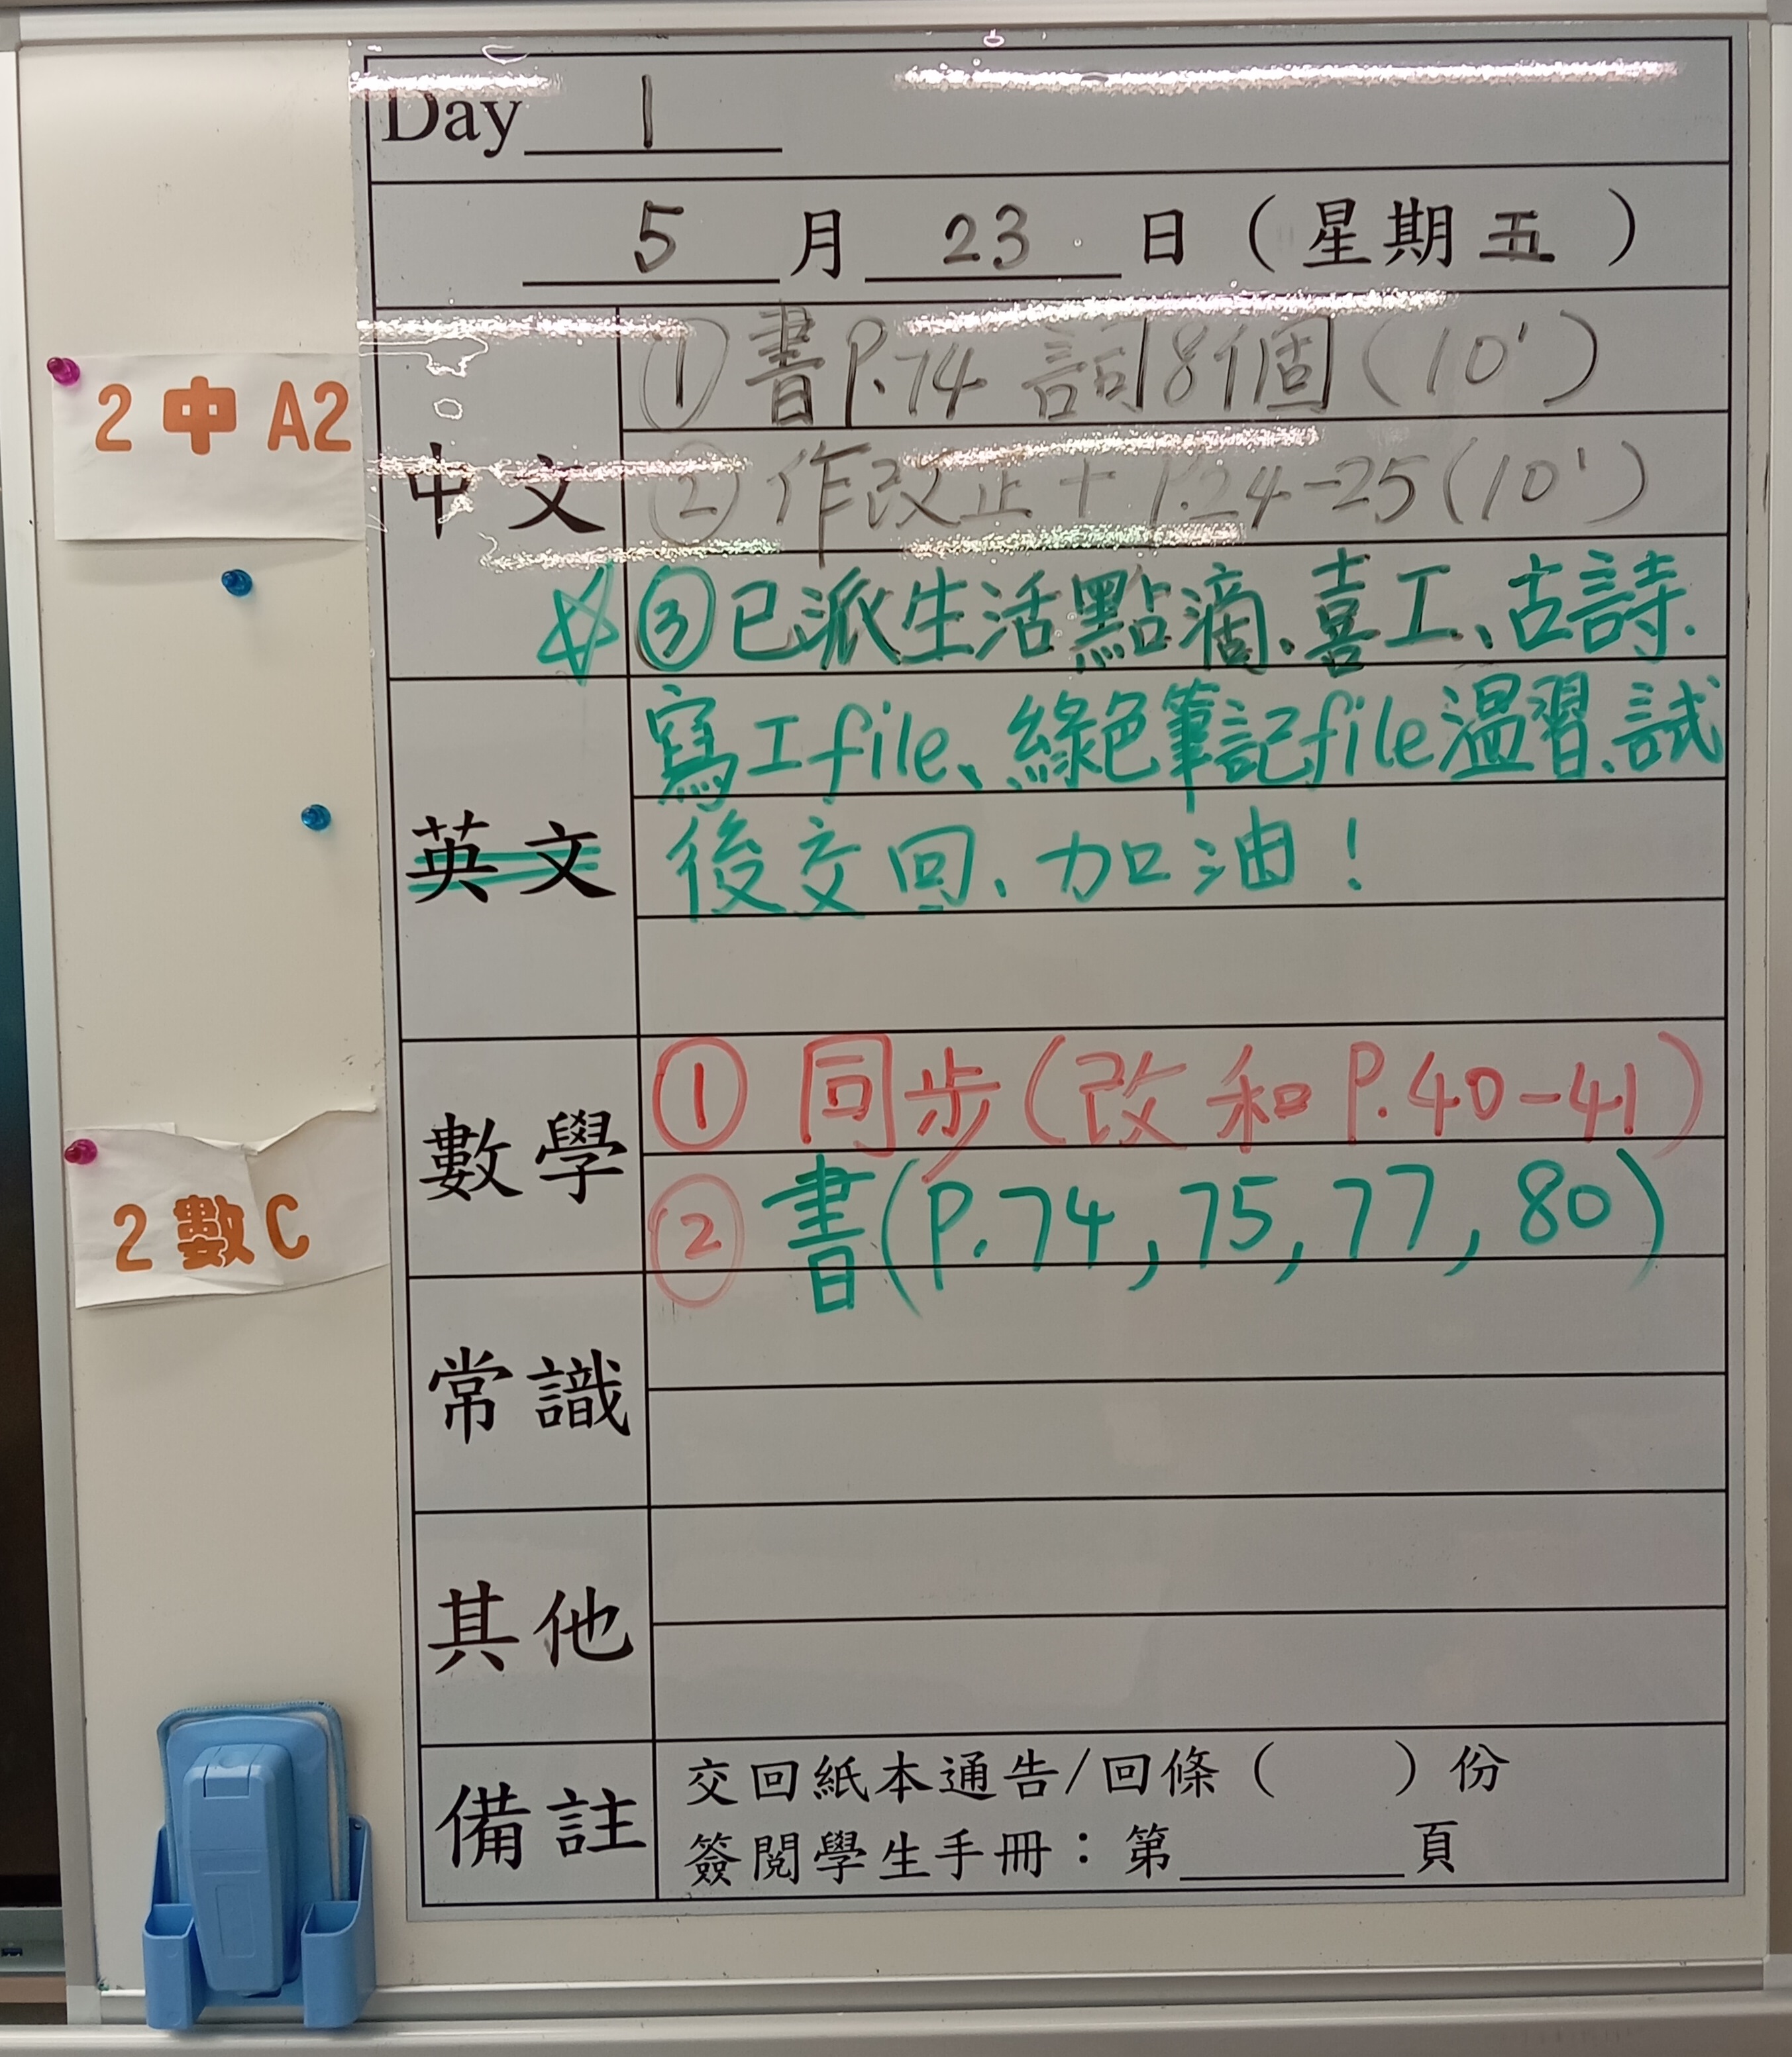 Day 1
5 月 23 日 ( 星期 五 )
2 中 A2
中文
① 書P.74 詞8個(10')
② 作改正 + P.24-25(10')
☆ ③ 已派生活點滴、喜工、古詩、
英文
寫工file、綠色筆記file溫習、試
後交回、加油！
2 數 C
數學
① 同步(改和P.40-41)
② 書(P.74, 75, 77, 80)
常識
其他
備註
交回紙本通告/回條 (     ) 份
簽閱學生手冊：第_______頁